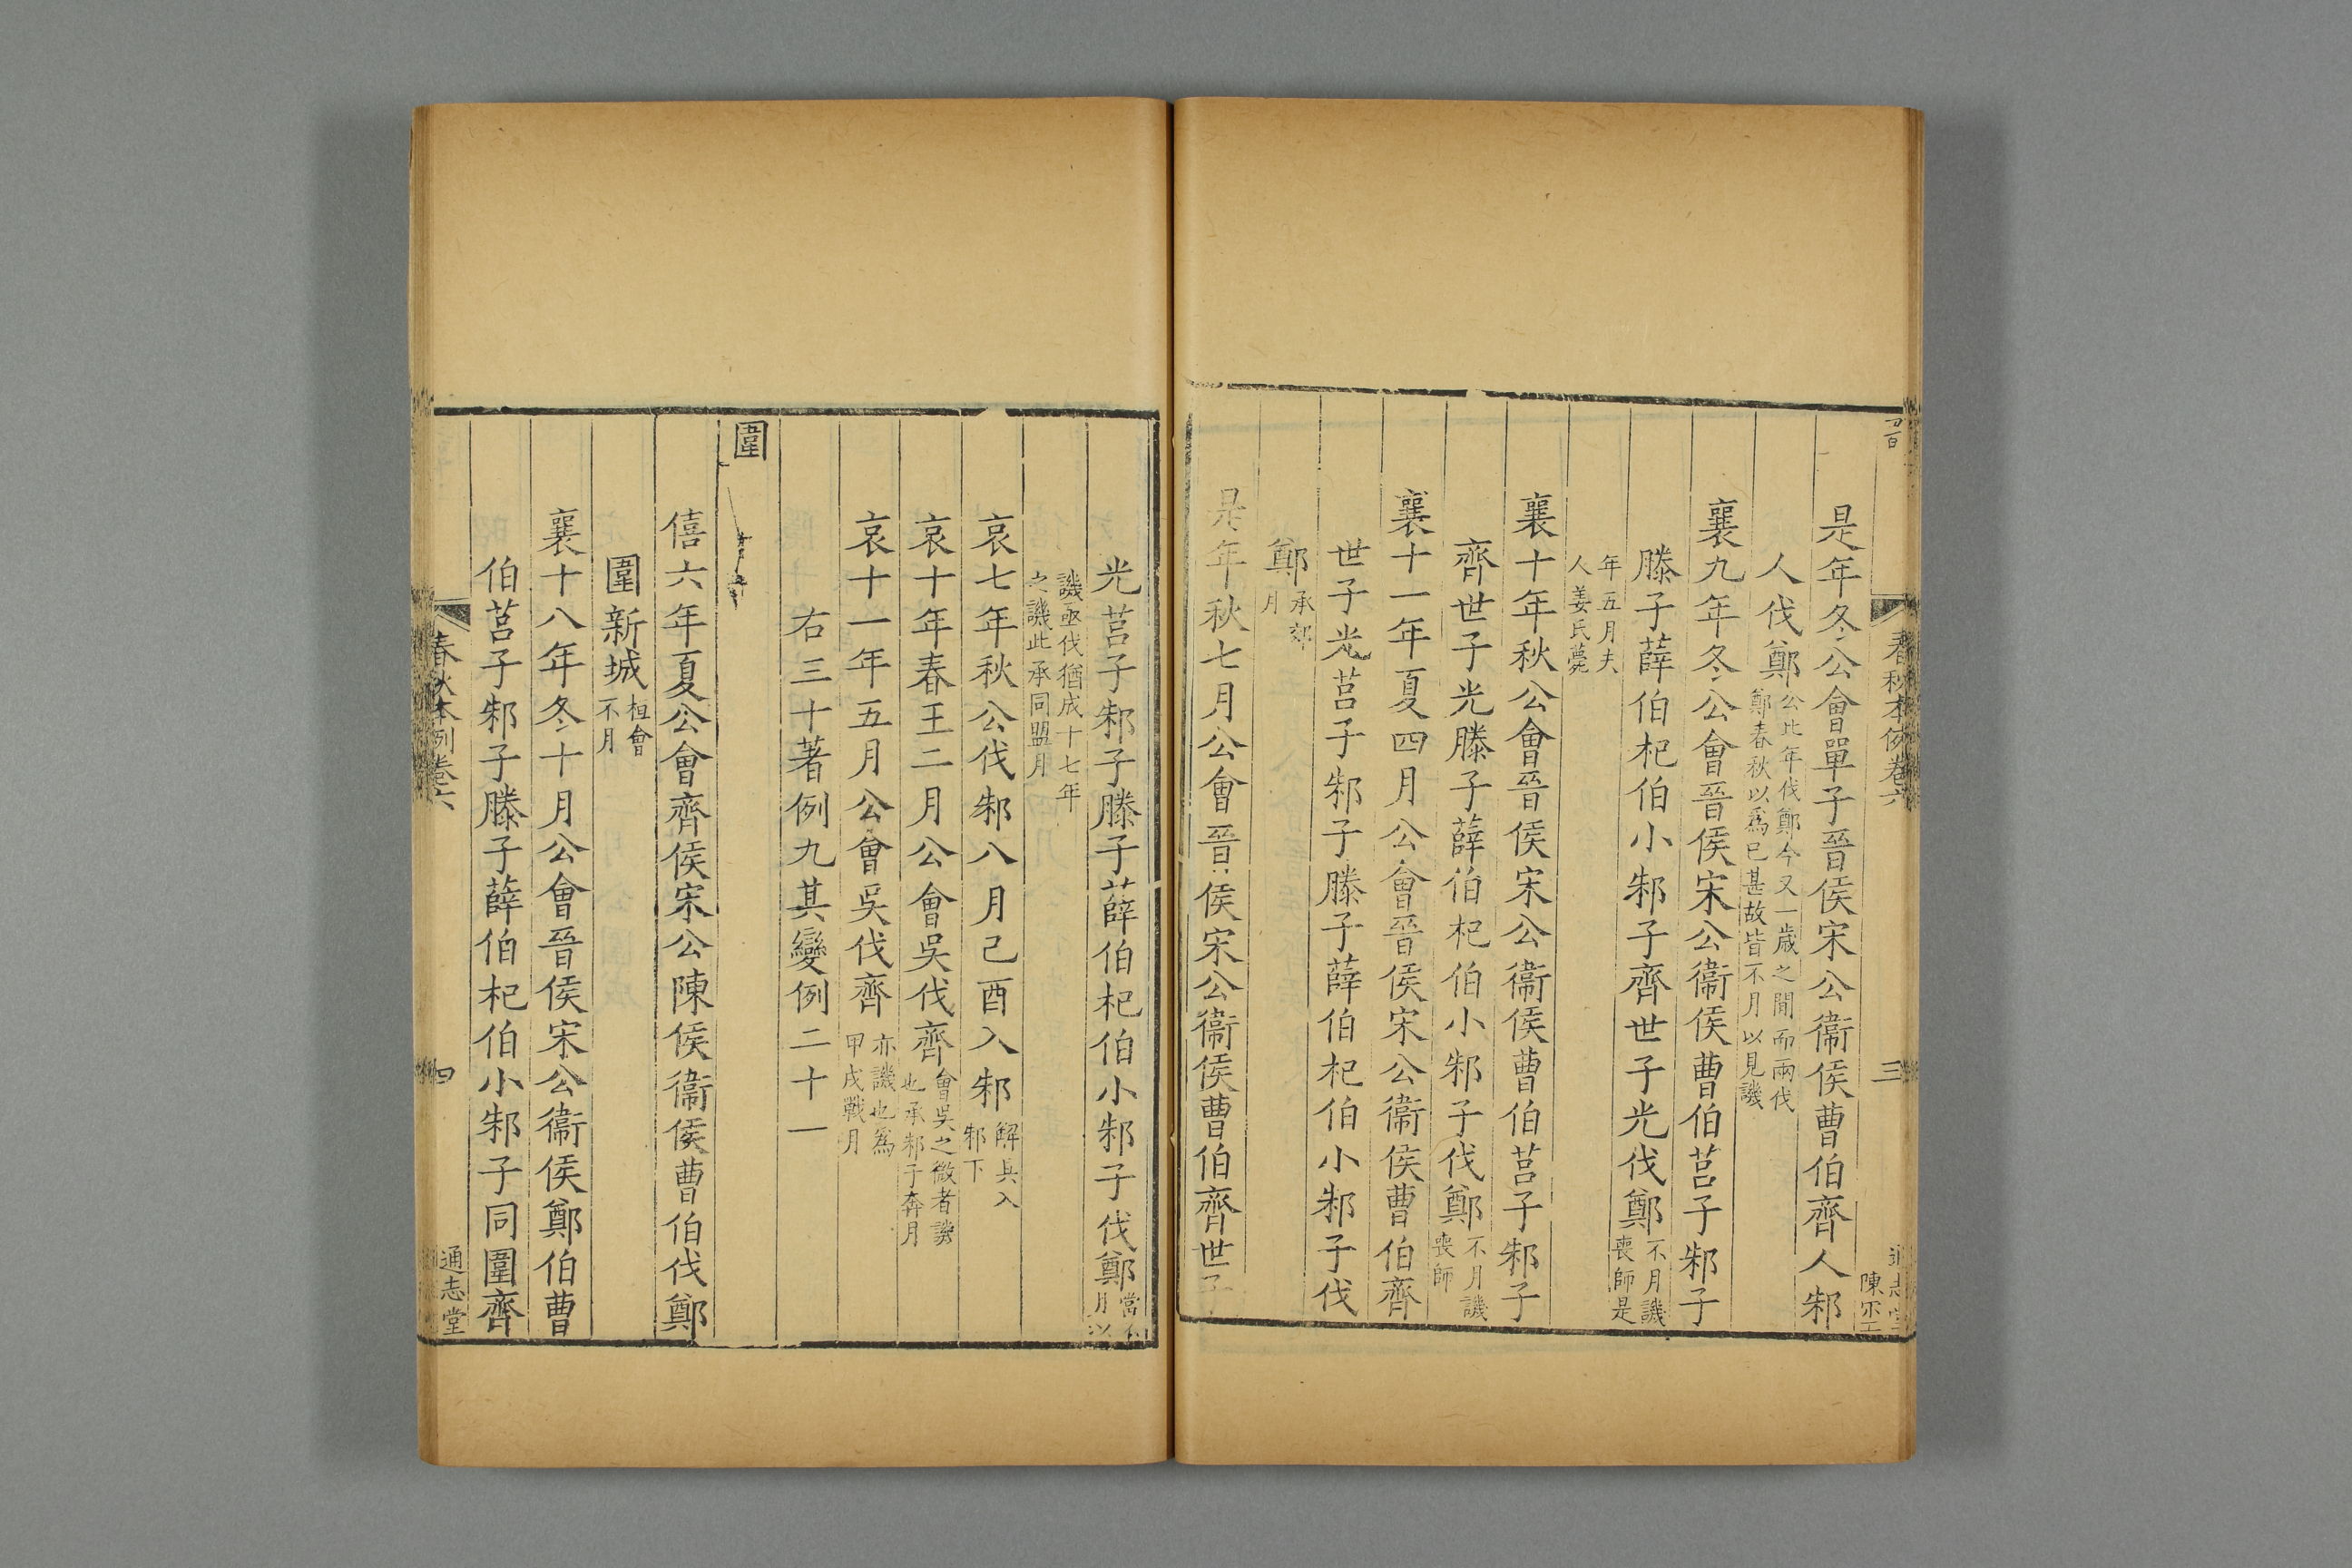 春秋本例卷六
三
是年冬公會單子晉侯宋公衞侯曹伯齊人邾
人伐鄭公比年伐鄭今又一歲之閒而兩伐
鄭春秋以爲已甚故皆不月以見譏
襄九年冬公會晉侯宋公衞侯曹伯莒子邾子
滕子薛伯杞伯小邾子齊世子光伐鄭不月譏
喪師是
年五月夫
人姜氏薨
襄十年秋公會晉侯宋公衞侯曹伯莒子邾子
齊世子光滕子薛伯杞伯小邾子伐鄭不月譏
喪師
襄十一年夏四月公會晉侯宋公衞侯曹伯齊
世子光莒子邾子滕子薛伯杞伯小邾子伐
鄭承郊
月
是年秋七月公會晉侯宋公衞侯曹伯齊世子
光莒子邾子滕子薛伯杞伯小邾子伐鄭當不
月以
譏亟伐猶成十七年
之譏此承同盟月
哀七年秋公伐邾八月己酉入邾解具入
邾下
哀十年春王二月公會吳伐齊會吳之微者譏
也承邾子奔月
哀十一年五月公會吳伐齊亦譏也爲
甲戌戰月
右三十著例九其變例二十一
圍
僖六年夏公會齊侯宋公陳侯衞侯曹伯伐鄭
圍新城桓會
不月
襄十八年冬十月公會晉侯宋公衞侯鄭伯曹
伯莒子邾子滕子薛伯杞伯小邾子同圍齊
春秋本例卷六
四
通志堂